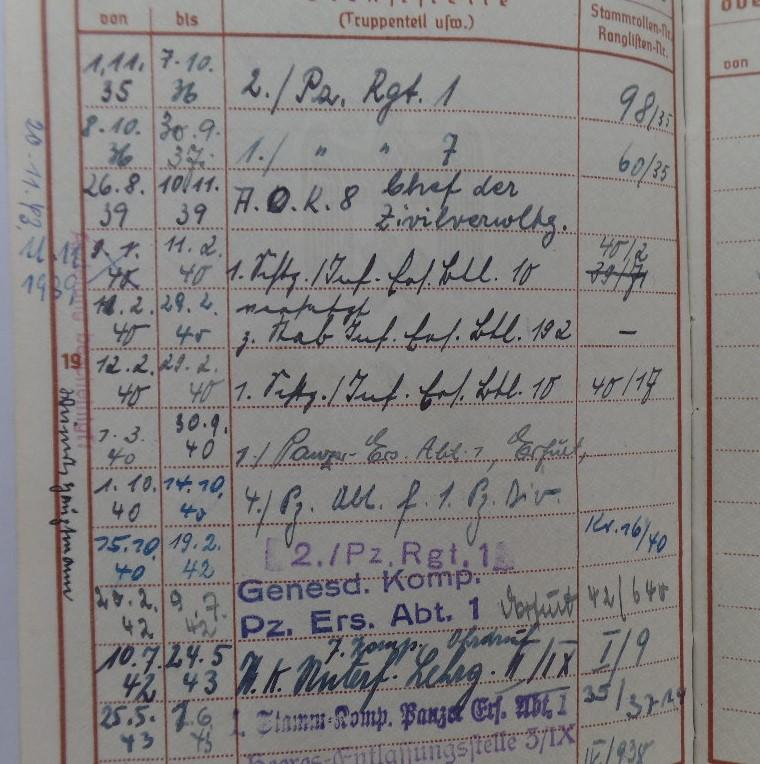 von bis (Truppenteil usw.) Stammrollen-Nr. Ranglisten-Nr.
von
1.11. 35 7.10. 36 2./ Pz. Rgt. 1 98/35
8.10. 36 30.9. 37. 1./ " " 7 60/35
26.8. 39 10.11. 39 A.O.K. 8 Chef der Zivilverwltg.
40/2
40 11.2. 40 1. / Inf. Ers. Btl. 10
20.11.43.
11.11. 1939
29.2. 40 versetzt
z. Stab Inf. Ers. Btl. 192 –
19
12.2. 40 29.2. 40 1. / Inf. Ers. Btl. 10 40/17
1.3. 40 30.9. 40 1./ Panzer-Ers. Abt. 1, Erfurt,
1.10. 40 14.10. 40 4./ Pz. Abt. f. 1. Pz. Div.
15.10. 40 19.2. 42 2./Pz. Rgt. 1 Kr. 16/40
20.2. 42 9.7. 42 Genesd. Komp.
Pz. Ers. Abt. 1 Erfurt 42/640
7. Komp. Ohrdruf
10.7. 42 24.5 43 W.K. Unterf. Lehrg. II/IX I/9
25.5. 43 7.6. 43 1. Stamm-Komp. Panzer Ers. Abt. 1
Heeres-Entlassungsstelle 3/IX IV/938